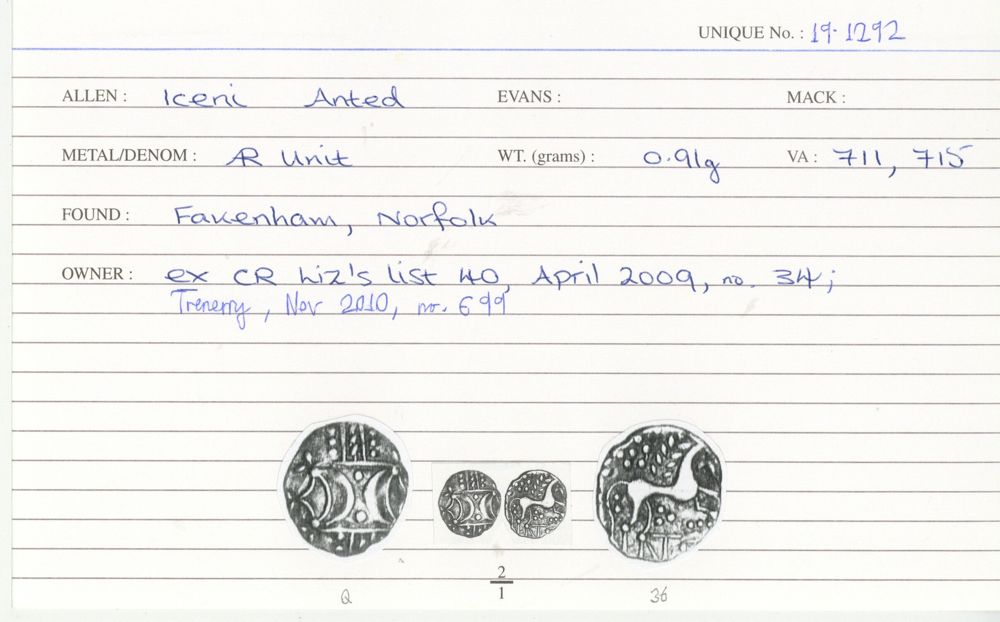 UNIQUE No. : 19.1292
ALLEN : Iceni Anted EVANS : MACK :
METAL/DENOM : AR Unit WT. (grams) : 0.91g VA : 711, 715
FOUND : Fakenham, Norfolk
OWNER : ex CR Liz's list 40, April 2009, no. 34;
Trenerry, Nov 2010, no. 699
2
1
Q 36